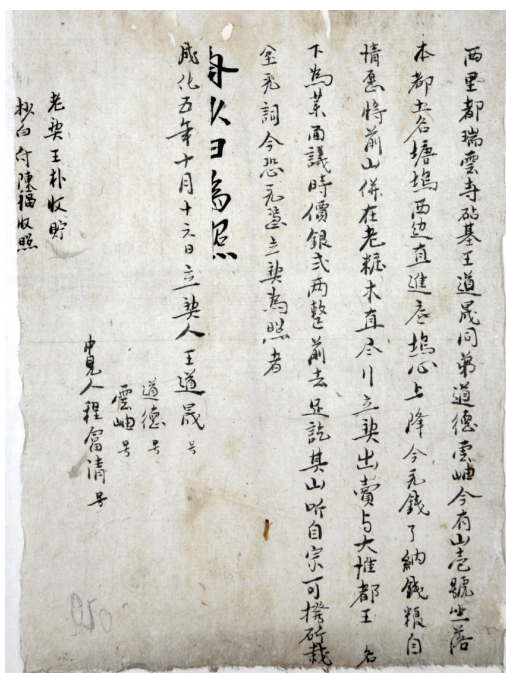 西里都瑞雲寺砧基王道晟同弟道德雲岫今有山壱號坐落
本都土名塘塢西边直進底塢心上降今无錢了納錢粮自
情愿將前山併在老粧木直尽行立契出賣与大惟都王 名
下為業面議時價銀弍两整前去足訖其山听自宗可撥斫栽
全无詞今恐无憑立契為照者
成化五年十月十六日立契人王道晟 号
道德 号
雲岫 号
中見人程富清 号
老契王朴收貯
抄白付陳福收照
020